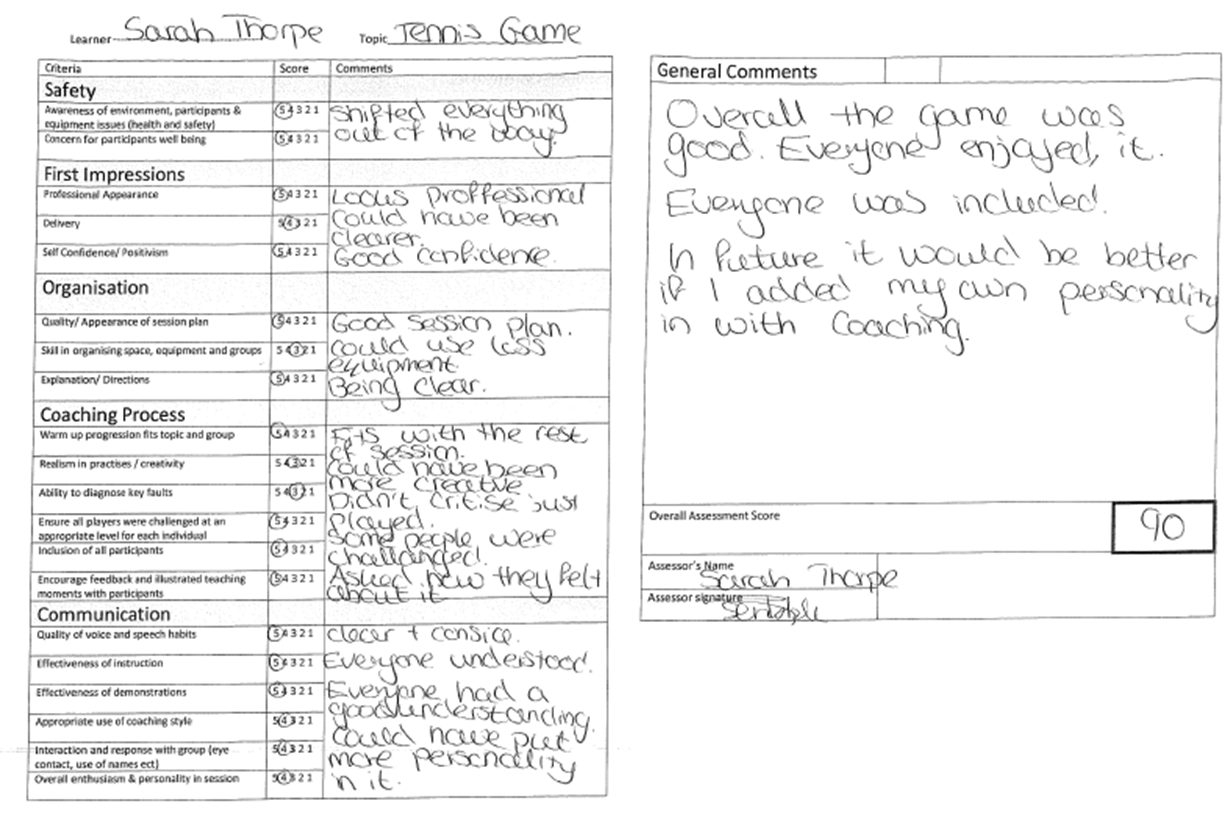 Learner Sarah Thorpe Topic Tennis Game
Criteria Score Comments
Safety
Awareness of environment, participants & equipment issues (health and safety) 5 4 3 2 1 Shifted everything
Concern for participants well being 5 4 3 2 1 out of the way.
First Impressions
Professional Appearance 5 4 3 2 1 Looks proffessional
Delivery 5 4 3 2 1 Could have been
clearer.
Self Confidence/ Positivism 5 4 3 2 1 Good confidence.
Organisation
Quality/ Appearance of session plan 5 4 3 2 1 Good session plan.
Skill in organising space, equipment and groups 5 4 3 2 1 could use less
equipment.
Explanation/ Directions 5 4 3 2 1 Being clear.
Coaching Process
Warm up progression fits topic and group 5 4 3 2 1 Fits with the rest
of session.
Realism in practises / creativity 5 4 3 2 1 could have been
more creative
Ability to diagnose key faults 5 4 3 2 1 Didn't critise just
Ensure all players were challenged at an appropriate level for each individual 5 4 3 2 1 played.
some people were
Inclusion of all participants 5 4 3 2 1 challanged.
Encourage feedback and illustrated teaching moments with participants 5 4 3 2 1 Asked how they felt
about it
Communication
Quality of voice and speech habits 5 4 3 2 1 clear + consice.
Effectiveness of instruction 5 4 3 2 1 Everyone understood.
Effectiveness of demonstrations 5 4 3 2 1 Everyone had a
good understanding.
Appropriate use of coaching style 5 4 3 2 1 could have put
Interaction and response with group (eye contact, use of names ect) 5 4 3 2 1 more personality
Overall enthusiasm & personality in session 5 4 3 2 1 in it.
General Comments
Overall the game was
good. Everyone enjoyed, it.
Everyone was included.
In future it would be better
if I added my own personality
in with Coaching.
Overall Assessment Score 90
Assessor's Name
Sarah Thorpe
Assessor signature